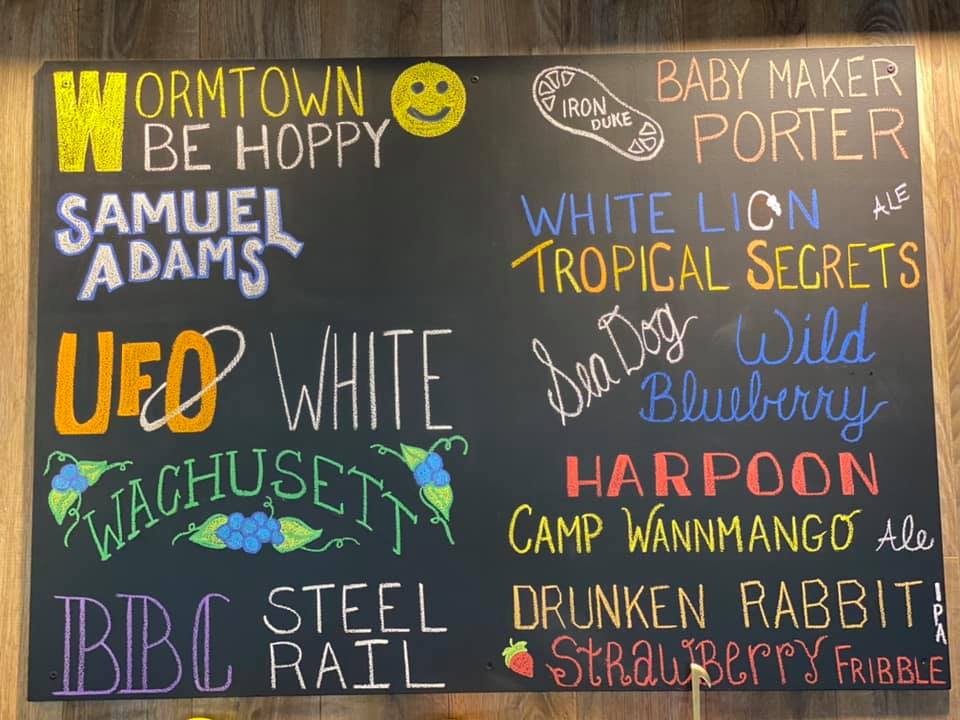 WORMTOWN
BE HOPPY
SAMUEL
ADAMS
UFO WHITE
WACHUSETT
BBC STEEL
RAIL
IRON
DUKE
BABY MAKER
PORTER
WHITE LION ALE
TROPICAL SECRETS
Sea Dog Wild
Blueberry
HARPOON
CAMP WANNMANGO Ale
DRUNKEN RABBIT IPA
Strawberry FRIBBLE